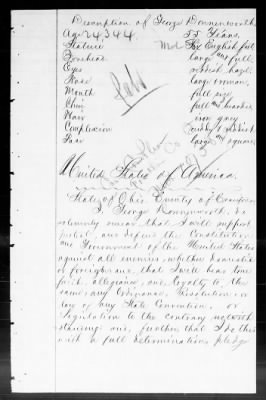 Description of George Donnenworth
Age 55 Years.
24344
Stature
Forehead large and full
Eyes reddish hazel
Nose large roman,
Mouth full size,
Chin full and
Hair iron gray
Complexion
Face large square
United States of America.
State of Ohio County of Crawford
I, George Donnenworth, do
solemnly swear that I will support
protect, and defend the Constitution
and Government of the United States
against all enemies, whether domestic
or foreign and, that I will bear true
faith, allegiance, and loyalty to the
same, any Ordinance, Resolution or
law of any State Convention, or
Legislation to the contrary notwith
standing and, further that I do this
with a full determination, pledge